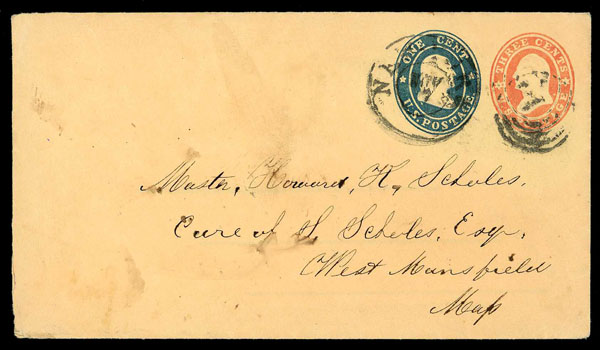 ONE CENT
U.S. POSTAGE.
THREE CENTS
Master, Howard, H, Scholes.
Care of S Scholes, Esqr,
West Mansfield
Mass